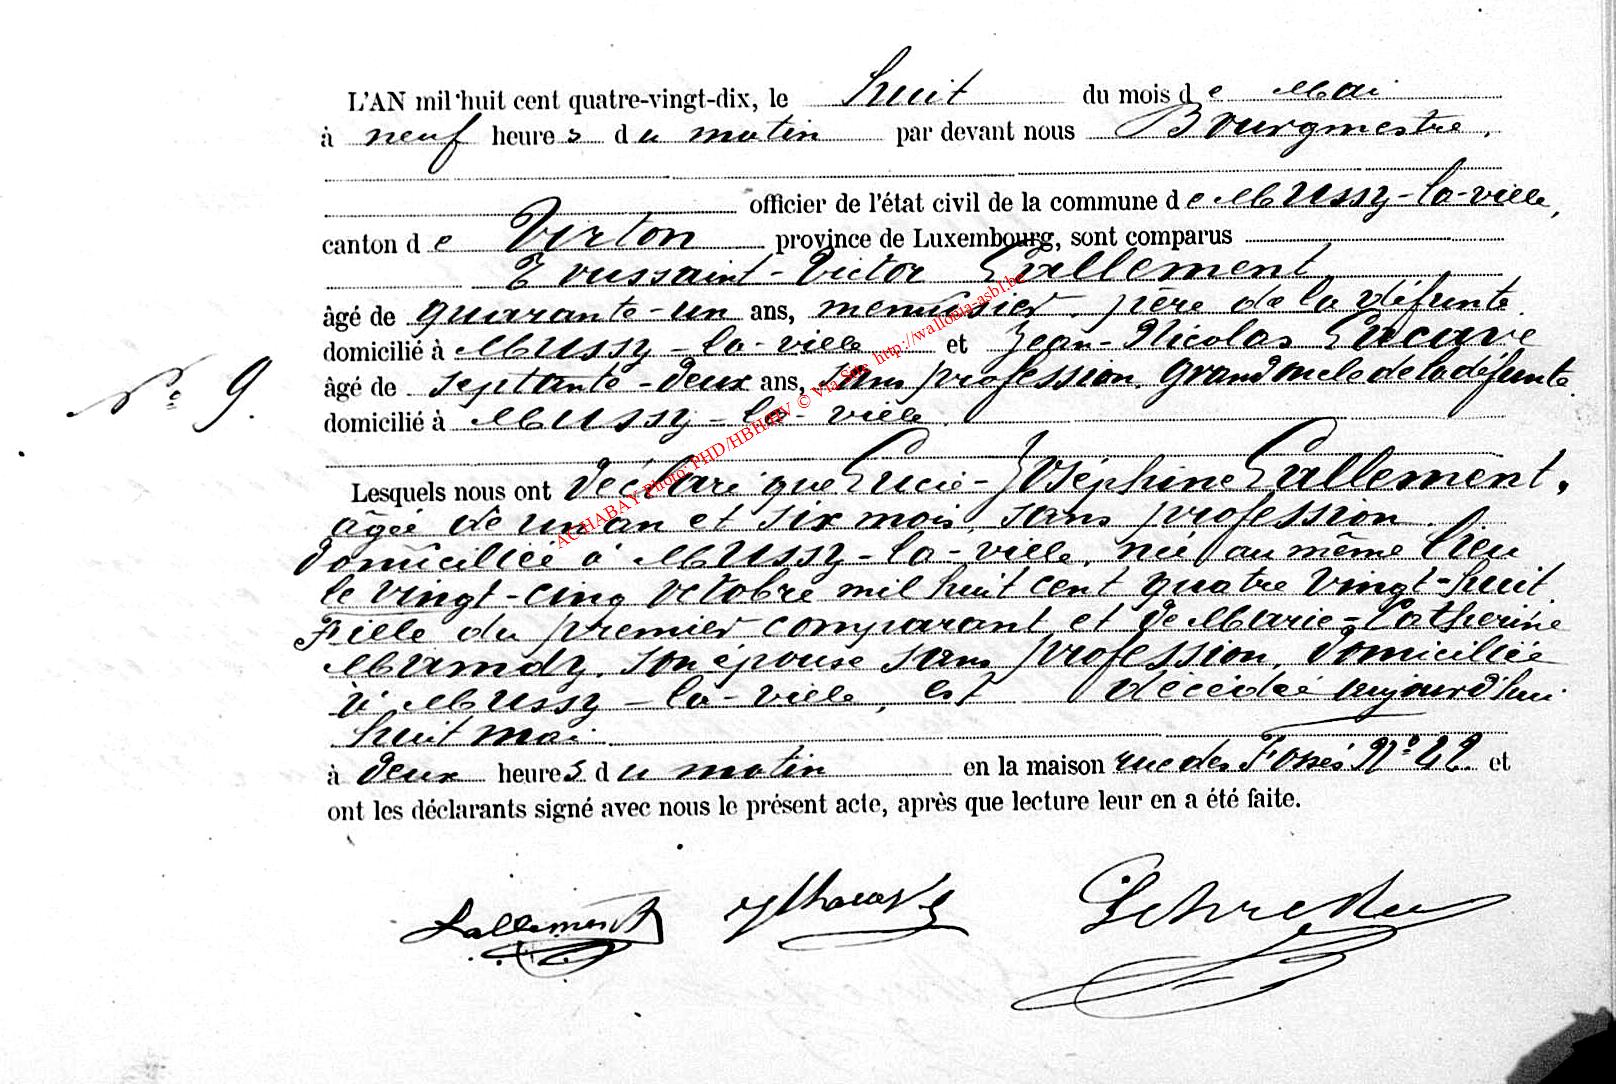 L'AN mil huit cent quatre-vingt-dix, le huit du mois de Mai
à neuf heures du matin par devant nous Bourgmestre,
officier de l'état civil de la commune de Mussy-la-ville,
canton de Virton province de Luxembourg, sont comparus
Toussaint-Victor Lallement,
âgé de quarante-un ans, menuisier, père de la défunte,
domicilié à Mussy-la-ville et Jean-Nicolas
âgé de septante-deux ans, sans profession, grand oncle de la défunte,
N° 9.
domicilié à Mussy-la-ville.
Lesquels nous ont déclaré que Lucie-Joséphine Lallement,
âgée de un an et six mois, sans profession,
domiciliée à Mussy-la-ville, née au même lieu
le vingt-cinq octobre mil huit cent quatre vingt-huit,
Fille du premier comparant et de Marie-Catherine
son épouse sans profession, domiciliée
à Mussy-la-ville, est décédée aujourd'hui
huit mai
à deux heures du matin en la maison rue des Fossés N° 42 et
ont les déclarants signé avec nous le présent acte, après que lecture leur en a été faite.
Lallement
ACHABAY Photo: PHD/HBH/HV © Via Sito http://wallonia-asbl.be